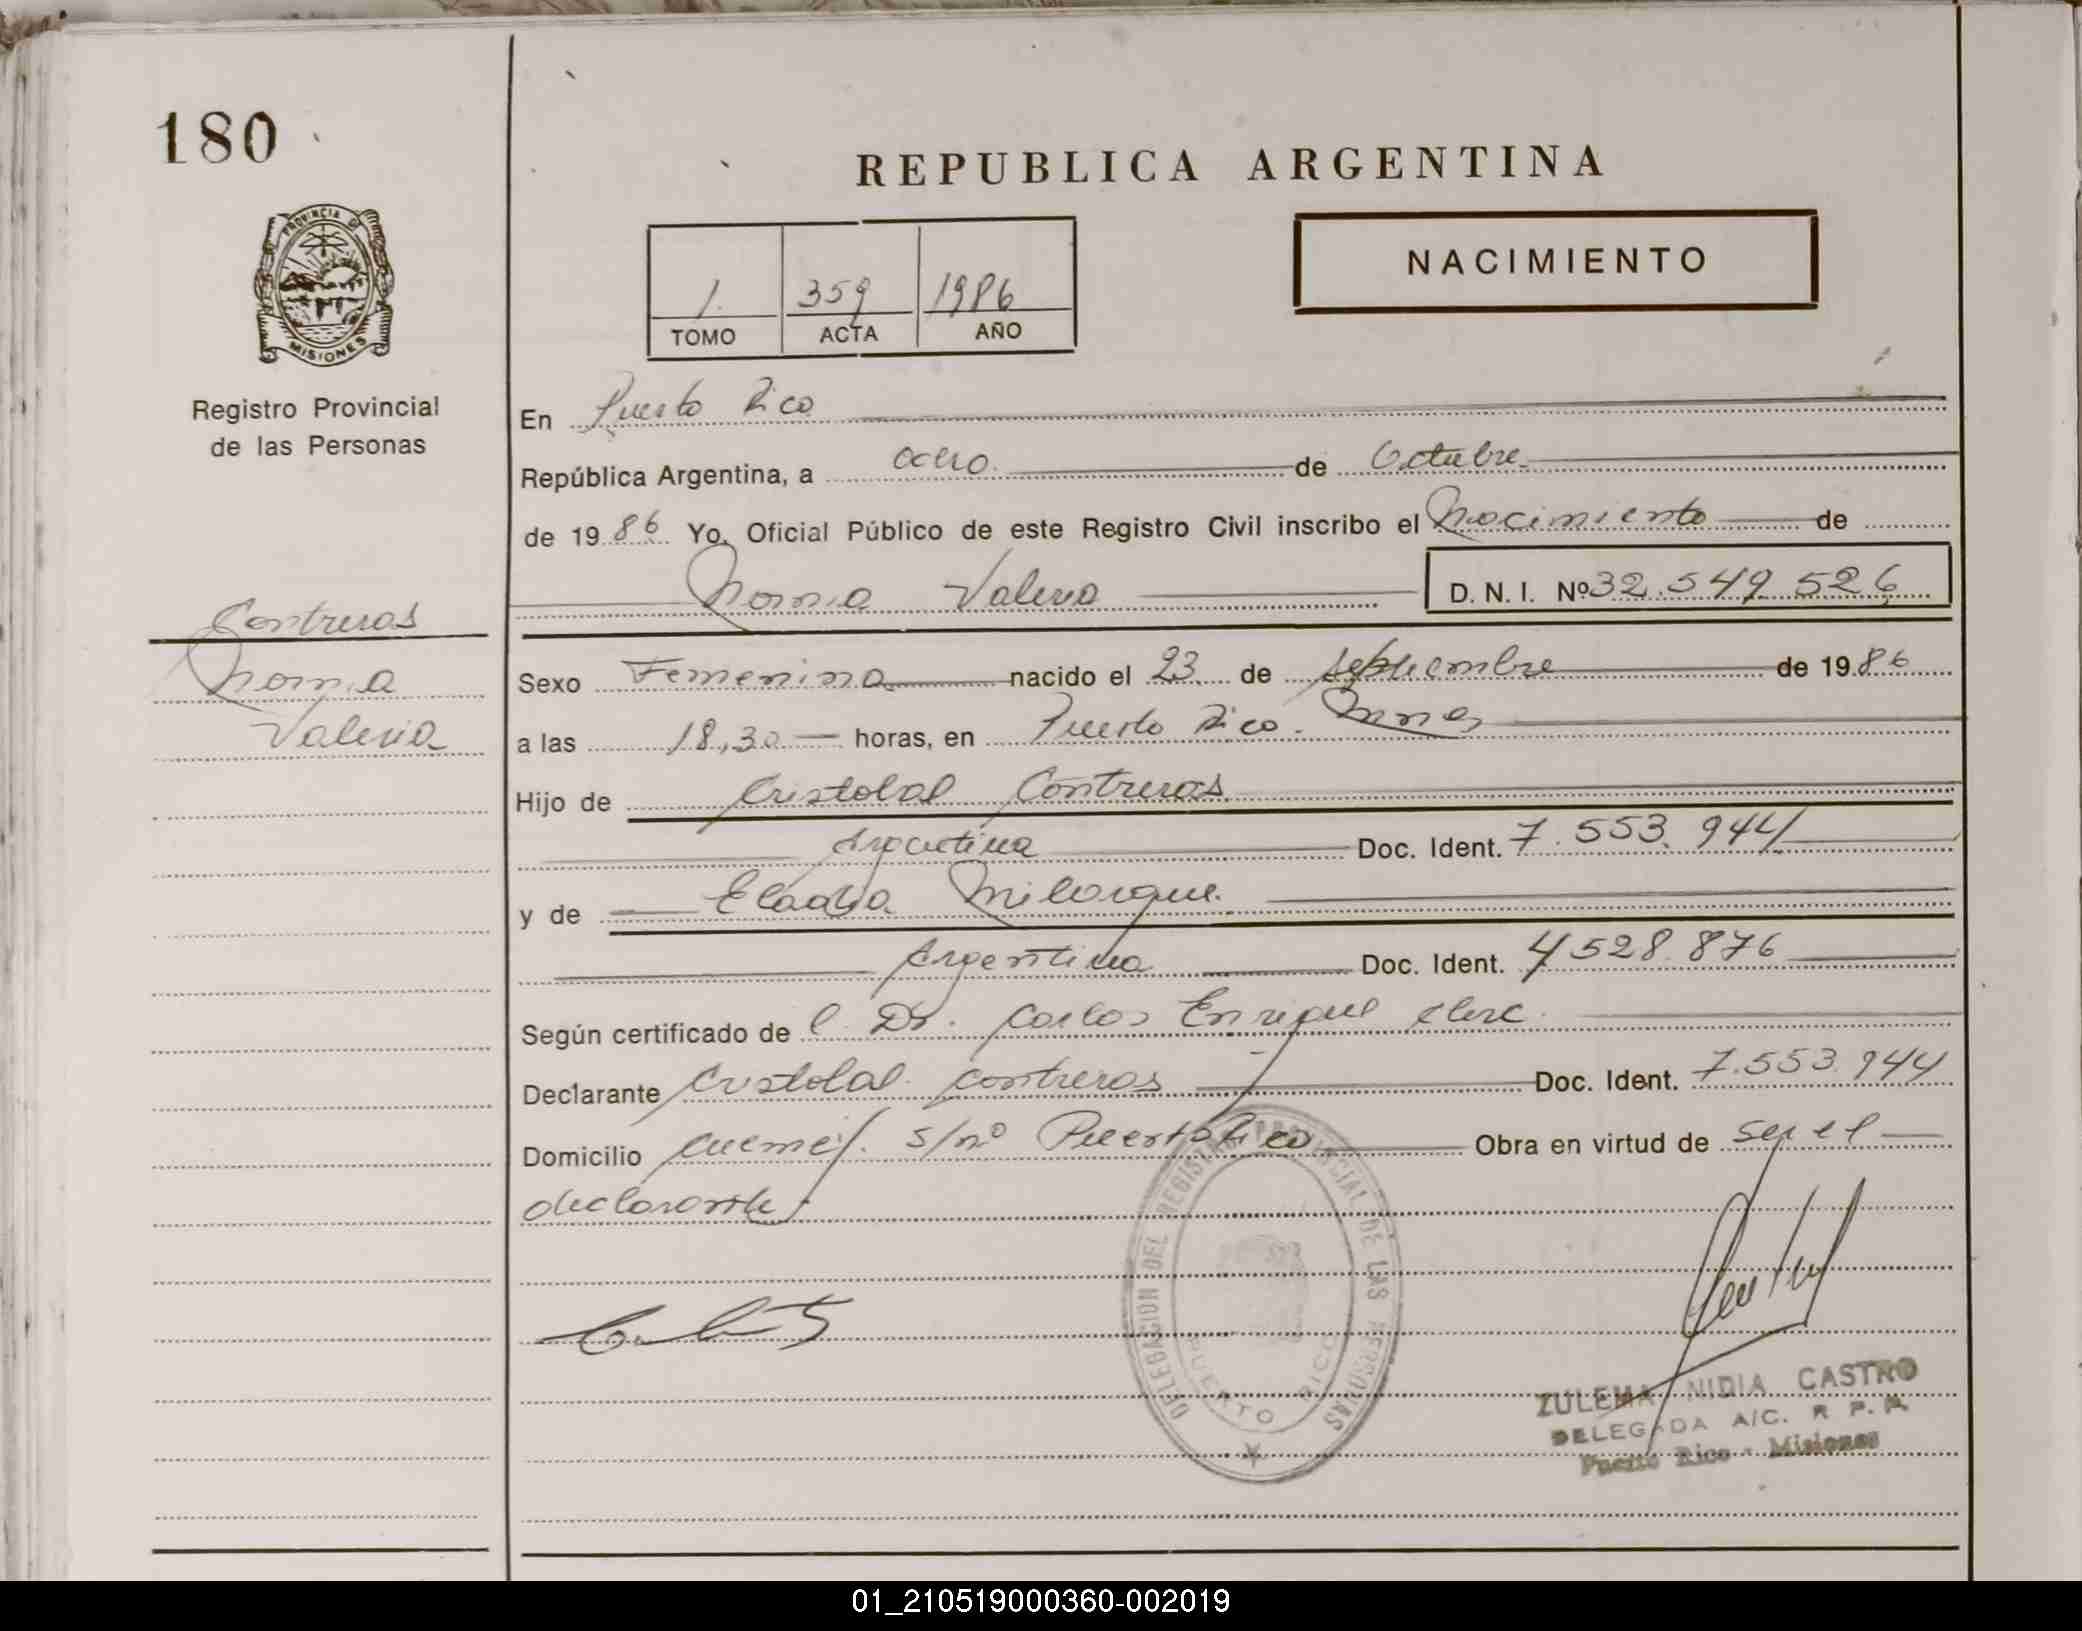 180
REPUBLICA ARGENTINA
NACIMIENTO
1. 359 1986
TOMO ACTA AÑO
PROVINCIA DE MISIONES
Registro Provincial
de las Personas
En Puerto Rico
República Argentina, a ocho de Octubre
de 1986 Yo, Oficial Público de este Registro Civil inscribo el Nacimiento de
Norma Valeria D. N. I. Nº 32.549.526
Contreras
Norma
Valeria
Sexo Femenino nacido el 23 de septiembre de 1986
a las 18,30 horas, en Puerto Rico. Mnes
Hijo de Cristobal Contreras
Argentina Doc. Ident. 7.553.944
y de Eladia
Argentina Doc. Ident. 4528.876
Según certificado de l Dr. Carlos Enrique
Declarante Cristobal Contreras Doc. Ident. 7.553.944
Domicilio s/nº Puerto Rico Obra en virtud de ser el
declarante
DELEGACION DEL REGISTRO PROVINCIAL DE LAS PERSONAS
PUERTO RICO
ZULEMA NIDIA CASTRO
DELEGADA A/C. R. P. P.
Puerto Rico - Misiones
01_210519000360-002019